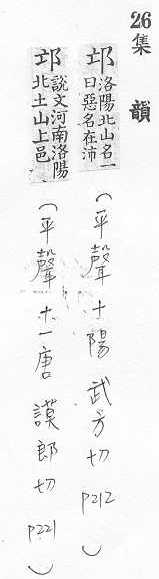 26集韻
邙洛陽北山名一曰惡名在沛(平聲十陽 武方切 P212)
邙說文河南洛陽北土山上邑(平聲十一唐 謨郎切 P221)